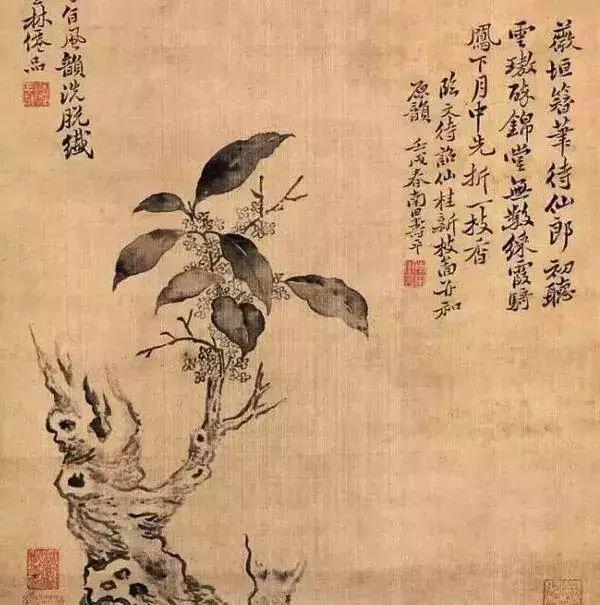 薇垣簪筆待仙郎初聽
雲璈醉錦堂無數綵霞騎
鳳下月中先折一枝香
臨文待詔仙桂新枝圖并和
原韻 壬戌春南田壽平
自風韻洗脫纖
林僊品